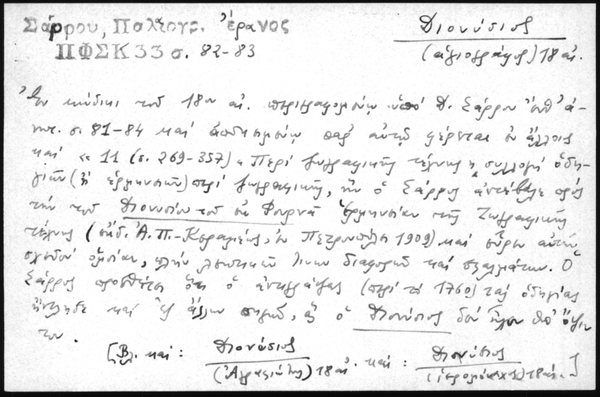 Σάρρου, Παλαιογρ. Ἔρανος
ΠΦΣΚ 33 σ. 82-83
Διονύσιος
(ἁγιογράφος) 18 αἰ.
Ἐν κώδικι τοῦ 18ου αἰ. περιγραφομένῳ ὑπὸ Δ. Σάρρου ἔνθ' ἀ-
νωτ. σ. 81-84 καὶ παρ' αὐτῷ φέρεται ἐν ἄλλοις
καὶ 11 (σ. 269-357) "Περὶ ζωγραφικῆς τέχνης, ἢ συλλογὴ ὁδη-
γιῶν (ἢ ἑρμηνειῶν) περὶ ζωγραφικῆς, ἣν ὁ Σάρρος ἀντέβαλε πρὸς
τὴν τοῦ Διονυσίου τοῦ ἐκ Φουρνᾶ Ἑρμηνείαν τῆς Ζωγραφικῆς
τέχνης (ἐκδ. Ἀ. Π.-Κεραμέως, ἐν Πετρουπόλει 1909) καὶ εὗρεν αὐτὴν
σχεδὸν ὁμοίαν, πλὴν λεκτικῶν τινων διαφορῶν καὶ σφαλμάτων. Ὁ
Σάρρος προσθέτει ὅτι ὁ ἀντιγράψας (περὶ τὸ 1760) τὰς ὁδηγίας
ἤντλησε καὶ ἐξ ἄλλων πηγῶν, ἃς ὁ Διονύσιος δὲν εἶχεν ὑπ' ὄψιν
του.
[Βλ. καὶ: Διονύσιος
(Ἀγραφιώτης) 18 αἰ. καὶ: Διονύσιος
(ἱερομόναχος) 18 αἰ.]